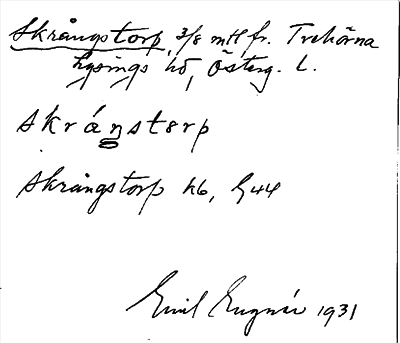 Skrångstorp, 3/8 mtl fr. Trehörna
Lysings hd, Österg. L.
skráŋstərp
Skrångstorp K6, G44
Emil 1931